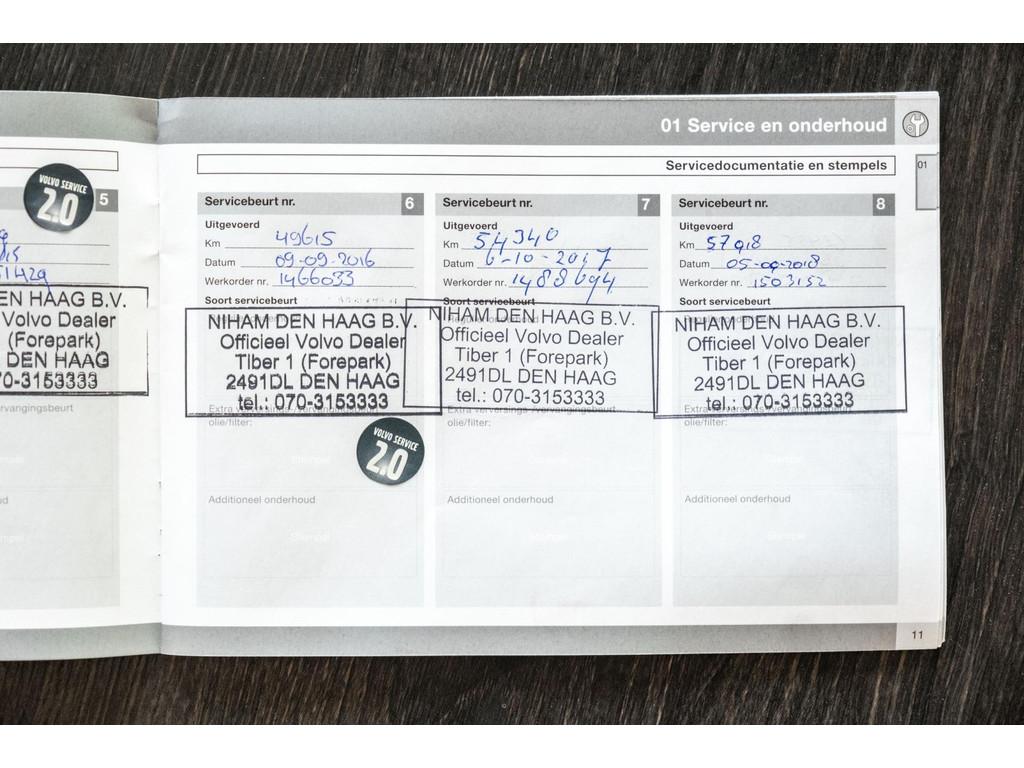 01 Service en onderhoud
Servicedocumentatie en stempels
01
5
VOLVO SERVICE
2.0
EN HAAG B.V.
Volvo Dealer
(Forepark)
DEN HAAG
70-3153333
rvangingsbeurt
Servicebeurt nr. 6
Uitgevoerd
Km 49615
Datum 09-09-2016
Werkorder nr. 1466033
Soort servicebeurt
NIHAM DEN HAAG B.V.
Officieel Volvo Dealer
Tiber 1 (Forepark)
2491DL DEN HAAG
tel.: 070-3153333
Extra verversings-/vervangingsbeurt
olie/filter:
VOLVO SERVICE
2.0
Additioneel onderhoud
Stempel
Servicebeurt nr. 7
Uitgevoerd
Km 54340
Datum 6-10-2017
Werkorder nr. 1488694
Soort servicebeurt
NIHAM DEN HAAG B.V.
Officieel Volvo Dealer
Tiber 1 (Forepark)
2491DL DEN HAAG
tel.: 070-3153333
Extra verversings-/vervangingsbeurt
olie/filter:
Additioneel onderhoud
Stempel
Servicebeurt nr. 8
Uitgevoerd
Km 57918
Datum 05-09-2018
Werkorder nr. 1503152
NIHAM DEN HAAG B.V.
Officieel Volvo Dealer
Tiber 1 (Forepark)
2491DL DEN HAAG
tel.: 070-3153333
Extra verversings-/vervangingsbeurt
olie/filter:
Additioneel onderhoud
Stempel
11